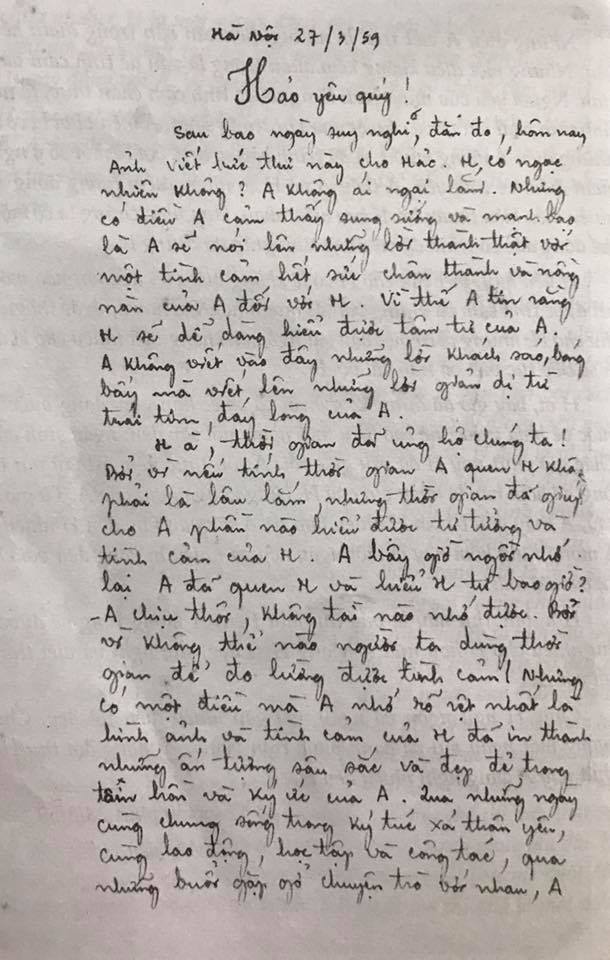 Hà Nội 27/3/59
Hảo yêu quý!
Sau bao ngày suy nghĩ, đắn đo, hôm nay
Anh viết bức thư này cho Hảo. H, có ngạc
nhiên không? A không ái ngại lắm. Nhưng
có điều A cảm thấy sung sướng và mạnh bạo
là A sẽ nói lên những lời thành thật với
một tình cảm hết sức chân thành và nồng
nàn của A đối với H. Vì thế A tin rằng
H sẽ dễ dàng hiểu được tâm tư của A.
A không viết vào đây những lời khách sáo, bóng
bẩy mà viết lên những lời giản dị từ
trái tim, đáy lòng của A.
H à, thời gian đã ủng hộ chúng ta!
Bởi vì nếu tính thời gian A quen H
phải là lâu lắm, nhưng thời gian đã giúp
cho A phần nào hiểu được tư tưởng và
tình cảm của H. A bây giờ ngồi nhớ
lại A đã quen H và hiểu H từ bao giờ?
- A chịu thôi, không tài nào nhớ được. Bởi
vì không thể nào người ta dùng thời
gian để đo lường được tình cảm! Nhưng
có một điều mà A nhớ rõ rệt nhất là
hình ảnh và tình cảm của H đã in thành
những ấn tượng sâu sắc và đẹp đẽ trong
tâm hồn và ký ức của A. Qua những ngày
cùng chung sống trong ký túc xá thân yêu,
cùng lao động, học tập và công tác, qua
những buổi gặp gỡ chuyện trò với nhau, A